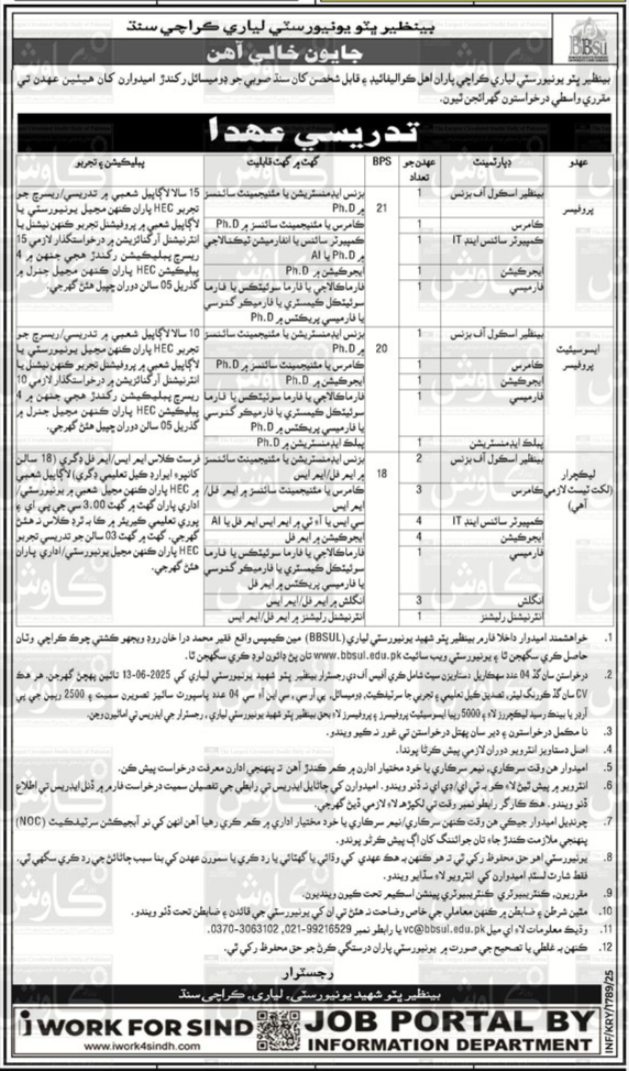 بينظير ڀٽو يونيورسٽي لياري ڪراچي سنڌ
جايون خالي آهن
BBSU
بينظير ڀٽو يونيورسٽي لياري ڪراچي پاران اهل ڪواليفائيڊ ۽ قابل شخصن کان سنڌ صوبي جو ڊوميسائل رکندڙ اميدوارن کان هيٺين عهدن تي
مقرري واسطي درخواستون گهرائجن ٿيون.
تدريسي عهدا
عهدو ڊپارٽمينٽ عهدن جو تعداد BPS گهٽ ۾ گهٽ قابليت پبليڪيشن ۽ تجربو
پروفيسر
بينظير اسڪول آف بزنس 1 21 بزنس ايڊمنسٽريشن يا مئنيجمينٽ سائنسز ۾ Ph.D
ڪامرس 1 ڪامرس يا مئنيجمينٽ سائنسز ۾ Ph.D
ڪمپيوٽر سائنس اينڊ IT 1 ڪمپيوٽر سائنس يا انفارميشن ٽيڪنالاجي يا AI ۾ Ph.D
ايجوڪيشن 1 ايجوڪيشن ۾ Ph.D
فارميسي 1 فارماڪالاجي يا فارما سوئيٽڪس يا فارما سوئيٽڪل ڪيمسٽري يا فارميڪو گنوسي يا فارميسي پريڪٽس ۾ Ph.D
15 سالا لاڳاپيل شعبي ۾ تدريسي/ريسرچ جو
تجربو HEC پاران ڪنهن مڃيل يونيورسٽي يا
لاڳاپيل شعبي ۾ پروفيشنل تجربو ڪنهن نيشنل يا
انٽرنيشنل آرگنائزيشن ۾ درخواستگذار لازمي 15
ريسرچ پبليڪيشن رکندڙ هجي جنهن ۾ 4
پبليڪيشن HEC پاران ڪنهن مڃيل جنرل ۾
گذريل 05 سالن دوران ڇپيل هئڻ گهرجي.
ايسوسيئيٽ پروفيسر
بينظير اسڪول آف بزنس 1 20 بزنس ايڊمنسٽريشن يا مئنيجمينٽ سائنسز ۾ Ph.D
ڪامرس 1 ڪامرس يا مئنيجمينٽ سائنسز ۾ Ph.D
ايجوڪيشن 1 ايجوڪيشن ۾ Ph.D
فارميسي 1 فارماڪالاجي يا فارما سوئيٽڪس يا فارما سوئيٽڪل ڪيمسٽري يا فارميڪو گنوسي يا فارميسي پريڪٽس ۾ Ph.D
پبلڪ ايڊمنسٽريشن 1 پبلڪ ايڊمنسٽريشن ۾ Ph.D
10 سالا لاڳاپيل شعبي ۾ تدريسي/ريسرچ جو
تجربو HEC پاران ڪنهن مڃيل يونيورسٽي يا
لاڳاپيل شعبي ۾ پروفيشنل تجربو ڪنهن نيشنل يا
انٽرنيشنل آرگنائزيشن ۾ درخواستگذار لازمي 10
ريسرچ پبليڪيشن رکندڙ هجي جنهن ۾ 4
پبليڪيشن HEC پاران ڪنهن مڃيل جنرل ۾
گذريل 05 سالن دوران ڇپيل هئڻ گهرجي.
ليڪچرار (لکت ٽيسٽ لازمي آهي)
بينظير اسڪول آف بزنس 2 18 بزنس ايڊمنسٽريشن يا مئنيجمينٽ سائنسز ۾ ايم فل/ايم ايس
ڪامرس 3 ڪامرس يا مئنيجمينٽ سائنسز ۾ ايم فل/ايم ايس
ڪمپيوٽر سائنس اينڊ IT 4 سي ايس يا آءِ ٽي ۾ ايم ايس ايم فل يا AI
ايجوڪيشن 4 ايجوڪيشن ۾ ايم فل
فارميسي 1 فارماڪالاجي يا فارما سوئيٽڪس يا فارما سوئيٽڪل ڪيمسٽري يا فارميڪو گنوسي يا فارميسي پريڪٽس ۾ ايم فل
انگلش 3 انگلش ۾ ايم فل/ايم ايس
انٽرنيشنل رليشنز 1 انٽرنيشنل رليشنز ۾ ايم فل/ايم ايس
فرسٽ ڪلاس ايم ايس/ايم فل ڊگري (18 سالن
کانپوءِ ايوارڊ ڪيل تعليمي ڊگري) لاڳاپيل شعبي
۾ HEC پاران ڪنهن مڃيل شعبي ۾ يونيورسٽي/
اداري پاران گهٽ ۾ گهٽ 3.00 سي جي پي اي ۽
پوري تعليمي ڪيريئر ۾ ڪا به ٿرڊ ڪلاس نه هئڻ
گهرجي. گهٽ ۾ گهٽ 03 سالن جو تدريسي تجربو
HEC پاران ڪنهن مڃيل يونيورسٽي/اداري پاران
هئڻ گهرجي.
1. خواهشمند اميدوار داخلا فارم بينظير ڀٽو شهيد يونيورسٽي لياري (BBSUL) مين ڪيمپس واقع فقير محمد درا خان روڊ ويجهو ڪشتي چوڪ ڪراچي وٽان
حاصل ڪري سگهجن ٿا ۽ يونيورسٽي ويب سائيٽ www.bbsul.edu.pk تان پڻ ڊائون لوڊ ڪري سگهجن ٿا.
2. درخواستن سان گڏ 04 عدد سهڪاريل دستاويزن سيٽ شامل ڪري آفيس آف دي رجسٽرار بينظير ڀٽو شهيد يونيورسٽي لياري کي 13-06-2025 تائين پهچڻ گهرجن. هر هڪ
CV سان گڏ ڪورنگ ليٽر، تصديق ڪيل تعليمي ۽ تجربي جا سرٽيفڪيٽ، ڊوميسائل، پي آر سي، سي اين آءِ سي 04 عدد پاسپورٽ سائيز تصويرن سميت ۽ 2500 رپين جي پي
آرڊر يا بينڪ رسيد ليڪچررز لاءِ ۽ 5000 رپيا ايسوسيئيٽ پروفيسرز ۽ پروفيسرز لاءِ بحق بينظير ڀٽو شهيد يونيورسٽي لياري، رجسٽرار جي ايڊريس تي اماڻيون وڃن.
3. نا مڪمل درخواستن ۽ دير سان پهتل درخواستن تي غور نه ڪيو ويندو.
4. اصل دستاويز انٽرويو دوران لازمي پيش ڪرڻا پوندا.
5. اميدوار هن وقت سرڪاري، نيم سرڪاري يا خود مختيار ادارن ۾ ڪم ڪندڙ آهن ته پنهنجي ادارن معرفت درخواست پيش ڪن.
6. انٽرويو ۾ پيش ٿيڻ لاءِ ڪو به ٽي اي/ڊي اي نه ڏنو ويندو. اميدوارن کي ڄاڻايل ايڊريس تي رابطي جي تفصيلن سميت درخواست فارم ۾ ڏنل ايڊريس تي اطلاع
ڏنو ويندو. هڪ ڪارگر رابطو نمبر وقت تي لکيڙهه لاءِ لازمي ڏيڻ گهرجي.
7. چونڊيل اميدوار جيڪي هن وقت ڪنهن سرڪاري/نيم سرڪاري يا خود مختيار اداري ۾ ڪم ڪري رهيا آهن انهن کي نو آبجيڪشن سرٽيفڪيٽ (NOC)
پنهنجي ملازمت ڪندڙ جاءِ تان جوائننگ کان اڳ پيش ڪرڻو پوندو.
8. يونيورسٽي اهو حق محفوظ رکي ٿي ته هو ڪنهن به هڪ عهدي کي وڌائي يا گهٽائي يا رد ڪري يا سمورن عهدن کي بنا سبب ڄاڻائڻ جي رد ڪري سگهي ٿي.
فقط شارٽ لسٽڊ اميدوارن کي انٽرويو لاءِ سڏايو ويندو.
9. مقرريون، ڪنٽريبيوٽري ڪنٽريبيوٽري پينشن اسڪيم تحت ڪيون وينديون.
10. مٿين شرطن ۽ ضابطن ۾ ڪنهن معاملي جي خاص وضاحت نه هئڻ تي ان کي يونيورسٽي جي قائدن ۽ ضابطن تحت ڏٺو ويندو.
11. وڌيڪ معلومات لاءِ اي ميل vc@bbsul.edu.pk يا رابطو نمبر 021-99216529, 0370-3063102.
12. ڪنهن به غلطي يا تصحيح جي صورت ۾ يونيورسٽي پاران درستگي ڪرڻ جو حق محفوظ رکي ٿي.
رجسٽرار
بينظير ڀٽو شهيد يونيورسٽي، لياري، ڪراچي سنڌ
INF/KRY/1789/25
i WORK FOR SIND
www.iwork4sindh.com
JOB PORTAL BY
INFORMATION DEPARTMENT